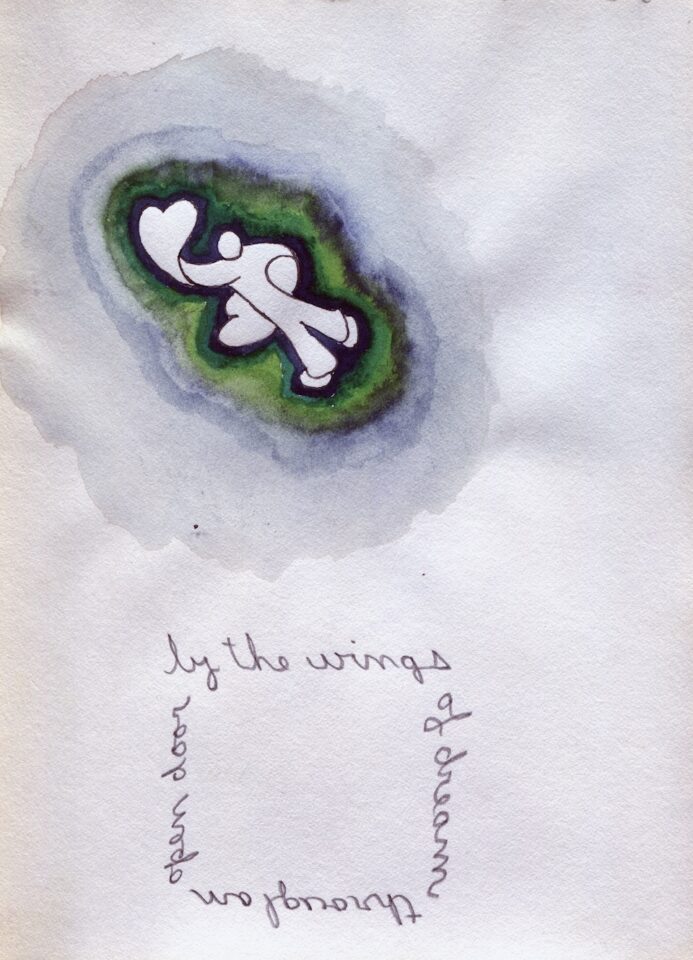 by the wings
of dream
through an
open door